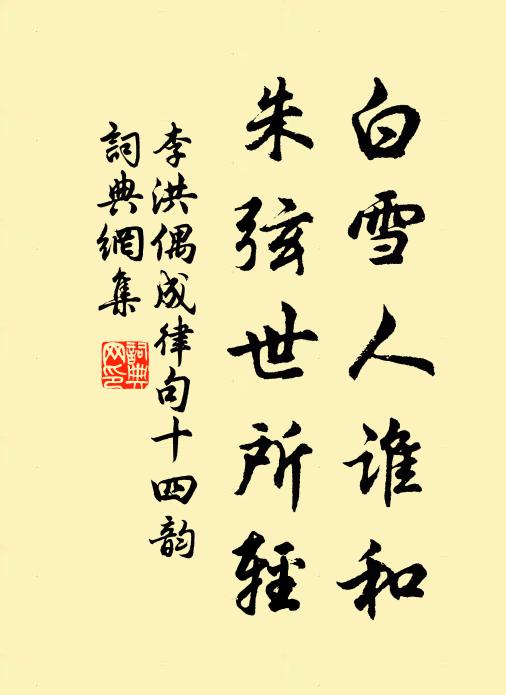 白雪人谁和
朱弦世所輕
李洪偶成律句十四韵
詞典網集
詞典網印